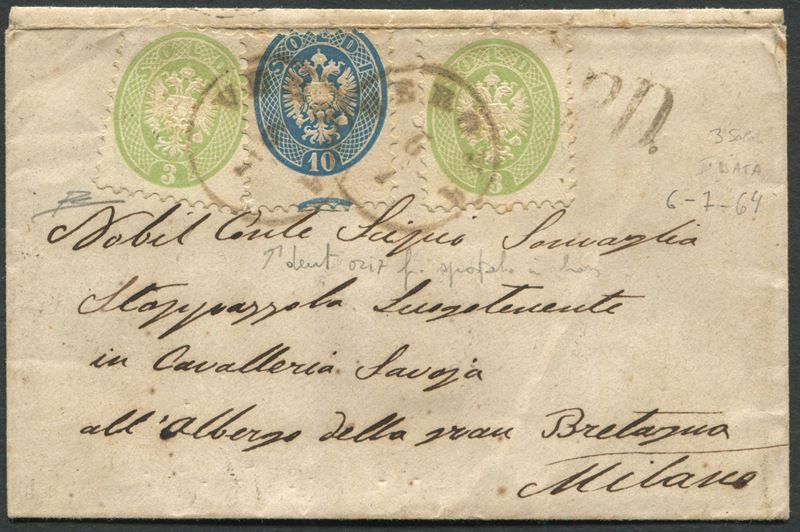 SOLDI
3
SOLDI
10
SOLDI
3
VERONA
P.D.
3 Soldi
I DATA
6-7-64
Nobil Conte Scipio Somaglia
dent oriz
Stoppazzola Luogotenente
in Cavalleria Savoja
all'Albergo della gran Bretagna
Milano